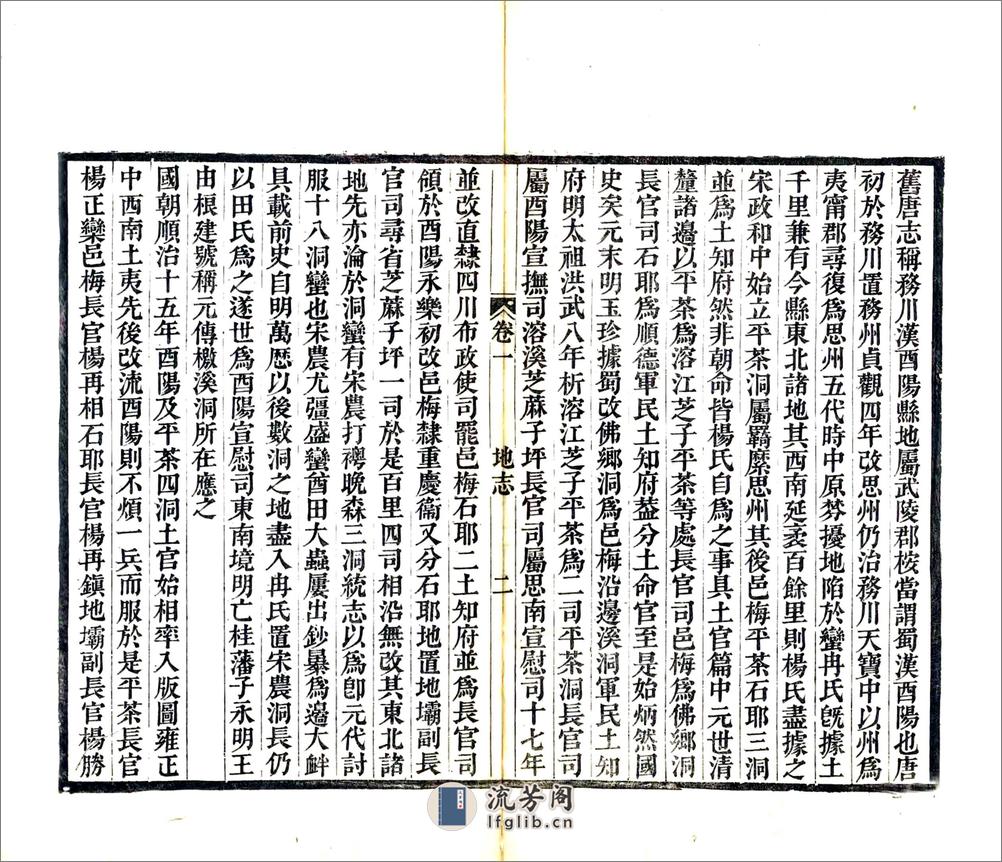 舊唐志稱務川漢酉陽縣地屬武陵郡桉當謂蜀漢酉陽也唐
初於務川置務州貞觀四年改思州仍治務川天寶中以州爲
夷甯郡尋復爲思州五代時中原棼擾地陷於蠻冉氏旣據土
千里兼有今縣東北諸地其西南延袤百餘里則楊氏盡據之
宋政和中始立平茶洞屬羈縻思州其後邑梅平茶石耶三洞
並爲土知府然非朝命皆楊氏自爲之事具土官篇中元世清
釐諸邊以平茶爲溶江芝子平茶等處長官司邑梅爲佛鄉洞
長官司石耶爲順德軍民土知府葢分土命官至是始炳然國
史矣元末明玉珍據蜀改佛鄉洞爲邑梅沿邊溪洞軍民土知
府明太祖洪武八年析溶江芝子平茶爲二司平茶洞長官司
屬酉陽宣撫司溶溪芝蔴子坪長官司屬思南宣慰司十七年
卷一 地志 二
並改直隸四川布政使司罷邑梅石耶二土知府並爲長官司
領於酉陽永樂初改邑梅隸重慶衞又分石耶地置地壩副長
官司尋省芝蔴子坪一司於是百里四司相沿無改其東北諸
地先亦淪於洞蠻有宋農打𥛬晚森三洞統志以爲卽元代討
服十八洞蠻也宋農尤彊盛蠻酋田大蟲屢出鈔暴爲邊大衅
具載前史自明萬歷以後數洞之地盡入冉氏置宋農洞長仍
以田氏爲之遂世爲酉陽宣慰司東南境明亡桂藩子永明王
由根建號稱元傳檄溪洞所在應之
國朝順治十五年酉陽及平茶四洞土官始相率入版圖雍正
中西南土夷先後改流酉陽則不煩一兵而服於是平茶長官
楊正欒邑梅長官楊再相石耶長官楊再鎭地壩副長官楊勝
流芳阁
lfglib.cn